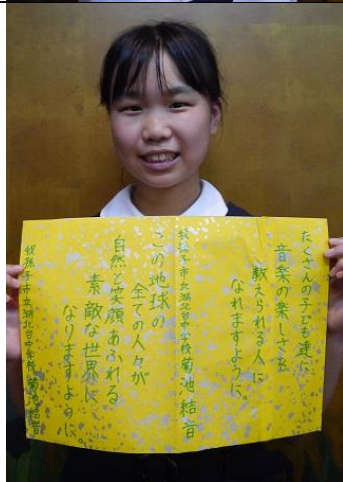 たくさんの子ども達に
音楽の楽しさを
教えられる人に
なれますように。
我孫子市立湖北台中学校 菊池結音
この地球の
全ての人々が
自然と笑顔あふれる
素敵な世界に
なりますように。
我孫子市立湖北台中学校 菊池結音